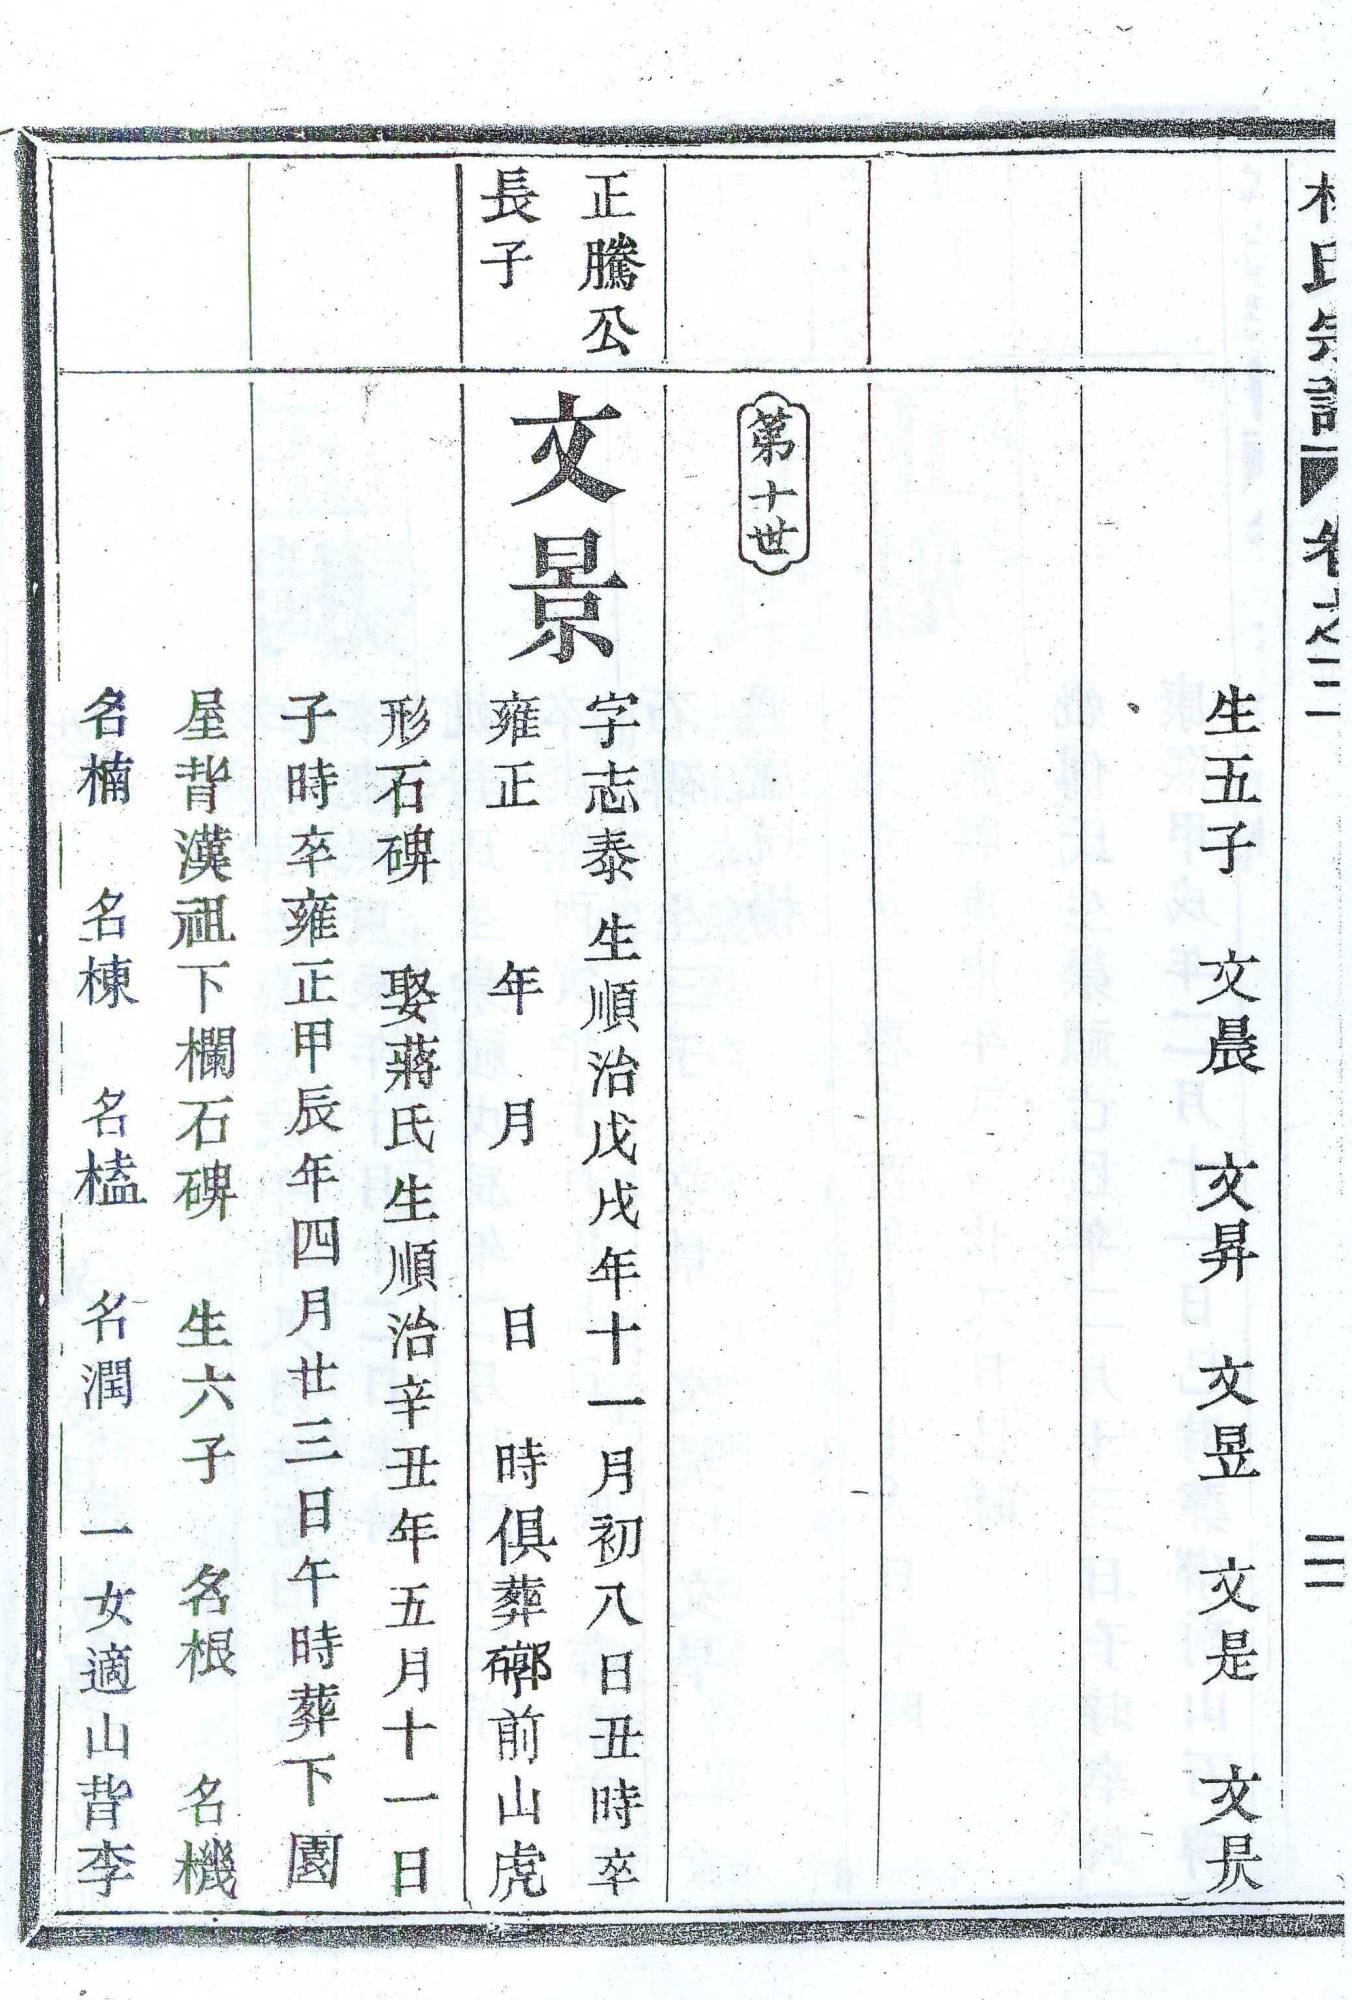 氏宗譜 卷之二 二
生五子 文晨 文昇 文昱 文是 文昃
第十世
正騰公
長子
文景
字志泰生順治戊戌年十一月初八日丑時卒
雍正 年 月 日 時俱葬𨞻前山虎
形石碑 娶蔣氏生順治辛丑年五月十一日
子時卒雍正甲辰年四月廿三日午時葬下園
屋背漢祖下欄石碑 生六子 名根 名機
名楠 名棟 名榼 名潤 一女適山背李